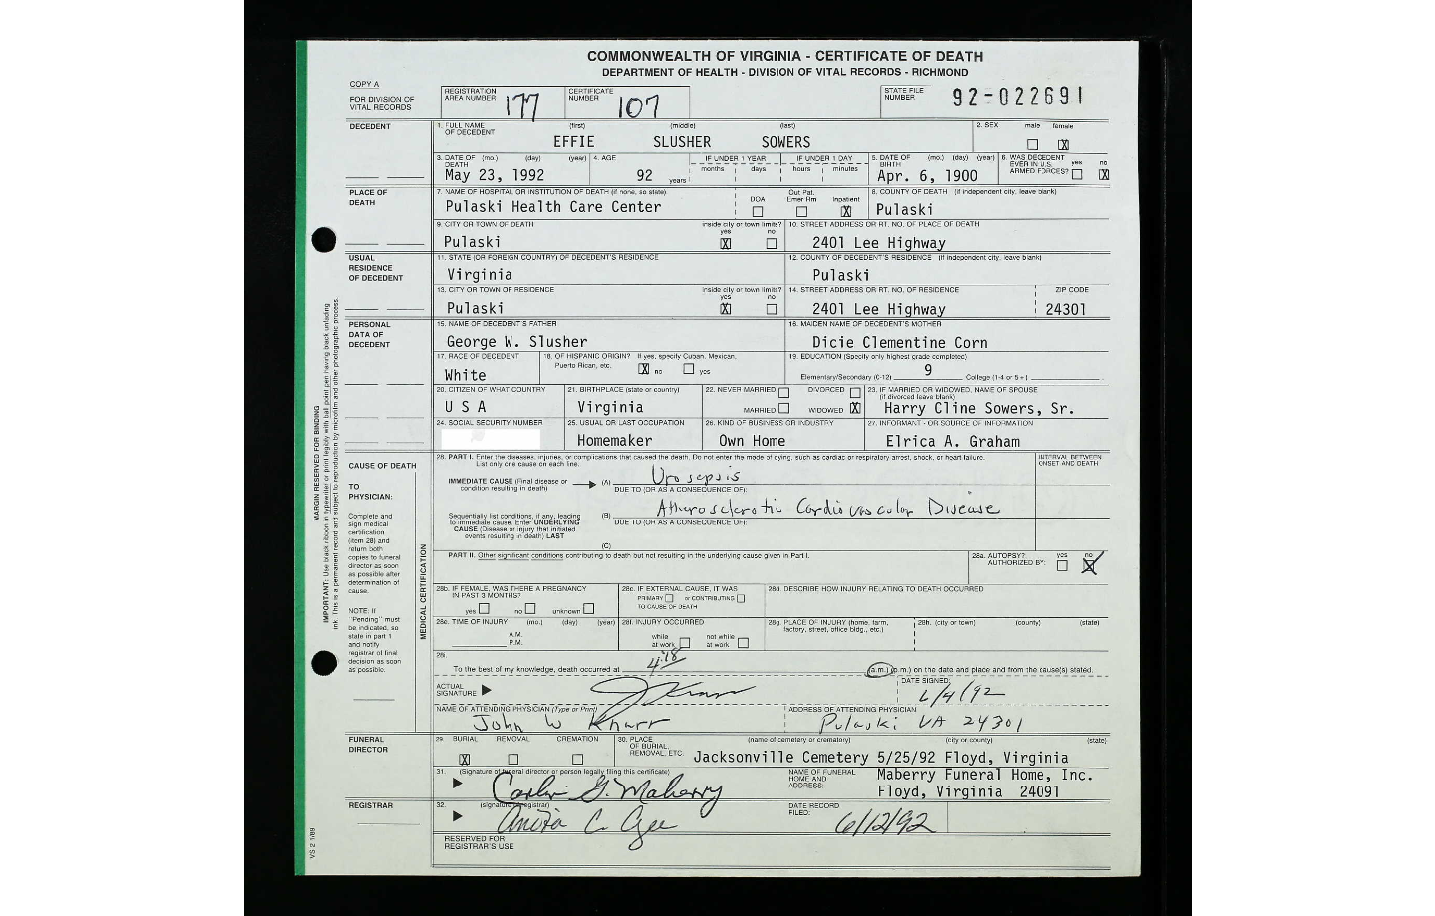 COMMONWEALTH OF VIRGINIA - CERTIFICATE OF DEATH
DEPARTMENT OF HEALTH - DIVISION OF VITAL RECORDS - RICHMOND
COPY A
FOR DIVISION OF VITAL RECORDS
REGISTRATION AREA NUMBER 177
CERTIFICATE NUMBER 107
STATE FILE NUMBER 92-022691
DECEDENT
1. FULL NAME OF DECEDENT (first) (middle) (last)
EFFIE SLUSHER SOWERS
2. SEX male female X
3. DATE OF DEATH (mo.) (day) (year)
May 23, 1992
4. AGE 92 years
IF UNDER 1 YEAR months days
IF UNDER 1 DAY hours minutes
5. DATE OF BIRTH (mo.) (day) (year)
Apr. 6, 1900
6. WAS DECEDENT EVER IN U.S. ARMED FORCES? yes no X
PLACE OF DEATH
7. NAME OF HOSPITAL OR INSTITUTION OF DEATH (if none, so state)
Pulaski Health Care Center
DOA Out Pat. Emer Rm Inpatient X
8. COUNTY OF DEATH (if independent city, leave blank)
Pulaski
9. CITY OR TOWN OF DEATH
Pulaski
inside city or town limits? yes X no
10. STREET ADDRESS OR RT. NO. OF PLACE OF DEATH
2401 Lee Highway
USUAL RESIDENCE OF DECEDENT
11. STATE (OR FOREIGN COUNTRY) OF DECEDENT'S RESIDENCE
Virginia
12. COUNTY OF DECEDENT'S RESIDENCE (if independent city, leave blank)
Pulaski
13. CITY OR TOWN OF RESIDENCE
Pulaski
inside city or town limits? yes X no
14. STREET ADDRESS OR RT. NO. OF RESIDENCE
2401 Lee Highway
ZIP CODE
24301
PERSONAL DATA OF DECEDENT
15. NAME OF DECEDENT'S FATHER
George W. Slusher
16. MAIDEN NAME OF DECEDENT'S MOTHER
Dicie Clementine Corn
17. RACE OF DECEDENT
White
18. OF HISPANIC ORIGIN? If yes, specify Cuban, Mexican, Puerto Rican, etc. X no yes
19. EDUCATION (Specify only highest grade completed)
Elementary/Secondary (0-12) 9 College (1-4 or 5+)
20. CITIZEN OF WHAT COUNTRY
U S A
21. BIRTHPLACE (state or country)
Virginia
22. NEVER MARRIED DIVORCED
MARRIED WIDOWED X
23. IF MARRIED OR WIDOWED, NAME OF SPOUSE (if divorced leave blank)
Harry Cline Sowers, Sr.
24. SOCIAL SECURITY NUMBER
25. USUAL OR LAST OCCUPATION
Homemaker
26. KIND OF BUSINESS OR INDUSTRY
Own Home
27. INFORMANT - OR SOURCE OF INFORMATION
Elrica A. Graham
CAUSE OF DEATH
TO PHYSICIAN:
Complete and
sign medical
certification
(item 28) and
return both
copies to funeral
director as soon
as possible after
determination of
cause.
NOTE: If
"Pending" must
be indicated, so
state in part 1
and notify
registrar of final
decision as soon
as possible.
MEDICAL CERTIFICATION
28. PART I. Enter the diseases, injuries, or complications that caused the death. Do not enter the mode of dying, such as cardiac or respiratory arrest, shock, or heart failure.
List only one cause on each line.
INTERVAL BETWEEN ONSET AND DEATH
IMMEDIATE CAUSE (Final disease or condition resulting in death) (A) Urosepsis
DUE TO (OR AS A CONSEQUENCE OF):
Sequentially list conditions, if any, leading to immediate cause. Enter UNDERLYING CAUSE (Disease or injury that initiated events resulting in death) LAST
(B) Atherosclerotic Cardiovascular Disease
DUE TO (OR AS A CONSEQUENCE OF):
(C)
PART II. Other significant conditions contributing to death but not resulting in the underlying cause given in Part I.
28a. AUTOPSY? AUTHORIZED BY: yes no X
28b. IF FEMALE, WAS THERE A PREGNANCY IN PAST 3 MONTHS?
yes no unknown
28c. IF EXTERNAL CAUSE, IT WAS
PRIMARY or CONTRIBUTING
TO CAUSE OF DEATH
28d. DESCRIBE HOW INJURY RELATING TO DEATH OCCURRED
28e. TIME OF INJURY (mo.) (day) (year)
A.M.
P.M.
28f. INJURY OCCURRED
while at work not while at work
28g. PLACE OF INJURY (home, farm, factory, street, office bldg., etc.)
28h. (city or town) (county) (state)
28i.
To the best of my knowledge, death occurred at 4:18 (a.m.) (p.m.) on the date and place and from the cause(s) stated.
ACTUAL SIGNATURE
DATE SIGNED:
6/4/92
NAME OF ATTENDING PHYSICIAN (Type or Print)
John W Knarr
ADDRESS OF ATTENDING PHYSICIAN
Pulaski VA 24301
FUNERAL DIRECTOR
29. BURIAL X REMOVAL CREMATION
30. PLACE OF BURIAL, REMOVAL, ETC. (name of cemetery or crematory) (city or county) (state)
Jacksonville Cemetery 5/25/92 Floyd, Virginia
31. (Signature of funeral director or person legally filing this certificate)
Carlin G. Maberry
NAME OF FUNERAL HOME AND ADDRESS:
Maberry Funeral Home, Inc.
Floyd, Virginia 24091
REGISTRAR
32. (signature of registrar)
Anita C. Agee
DATE RECORD FILED:
6/12/92
RESERVED FOR REGISTRAR'S USE
MARGIN RESERVED FOR BINDING
IMPORTANT: Use black ribbon in typewriter or print legibly with ball point pen having black unfading
ink. This is a permanent record and subject to reproduction by microfilm and other photographic process.
VS 2 1/89